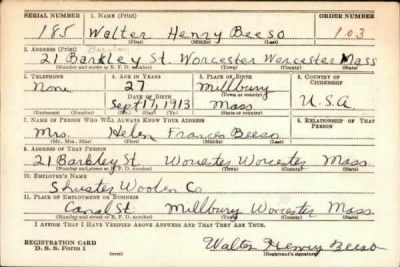 SERIAL NUMBER 1. NAME (Print) ORDER NUMBER
185 Walter Henry Beeso 103
(First) (Middle) (Last)
2. ADDRESS (Print)
21 Barkley St. Worcester Worcester Mass
(Number and street or R. F. D. number) (Town) (County) (State)
3. TELEPHONE 4. AGE IN YEARS 5. PLACE OF BIRTH 6. COUNTRY OF CITIZENSHIP
None 27 Millbury
DATE OF BIRTH (Town or county)
Sept 17, 1913 Mass U.S.A
(Exchange) (Number) (Mo.) (Day) (Yr.) (State or country)
7. NAME OF PERSON WHO WILL ALWAYS KNOW YOUR ADDRESS 8. RELATIONSHIP OF THAT PERSON
Mrs. Helen Frances Beeso
(Mr., Mrs., Miss) (First) (Middle) (Last)
9. ADDRESS OF THAT PERSON
21 Barkley St Worcester Worcester Mass.
(Number and street or R. F. D. number) (Town) (County) (State)
10. EMPLOYER'S NAME
Shuster Woolen Co
11. PLACE OF EMPLOYMENT OR BUSINESS
Canal St. Millbury Worcester Mass.
(Number and street or R. F. D. number) (Town) (County) (State)
I AFFIRM THAT I HAVE VERIFIED ABOVE ANSWERS AND THAT THEY ARE TRUE.
REGISTRATION CARD
D. S. S. Form 1 (over) Walter Henry Beeso
(Registrant's signature)